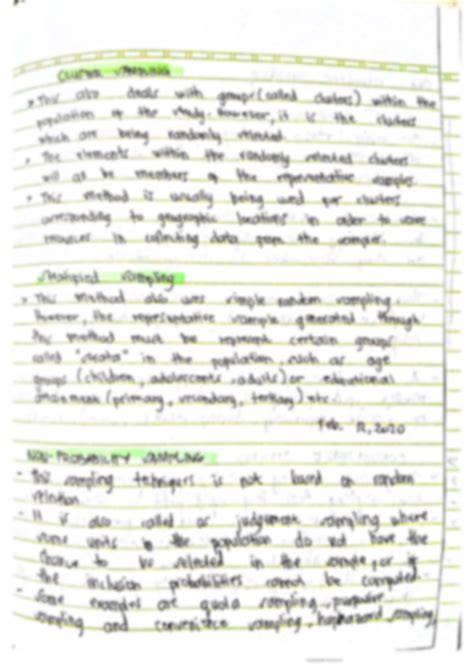 CLUSTER SAMPLING
• This also deals with groups (called clusters) within the
population of the study. However, it is the clusters
which are being randomly selected.
• The elements within the randomly selected clusters
will all be members of the representative samples.
• This method is usually being used per clusters
corresponding to geographic locations in order to save
resources in collecting data from the samples.
Stratified sampling
• This method also uses simple random sampling.
However, the representative sample generated through
this method must be represent certain groups
called "strata" in the population, such as age
groups (children, adolescents, adults) or educational
(primary, secondary, tertiary) etc.
Feb. 12, 2020
NON-PROBABILITY SAMPLING
- This sampling techniques is not based on random
selection.
- It is also called as judgement sampling where
some units in the population do not have the
chance to be selected in the sample, or if
the inclusion probabilities cannot be computed.
- Some examples are quota sampling, purposive
sampling and convenience sampling, haphazard sampling,